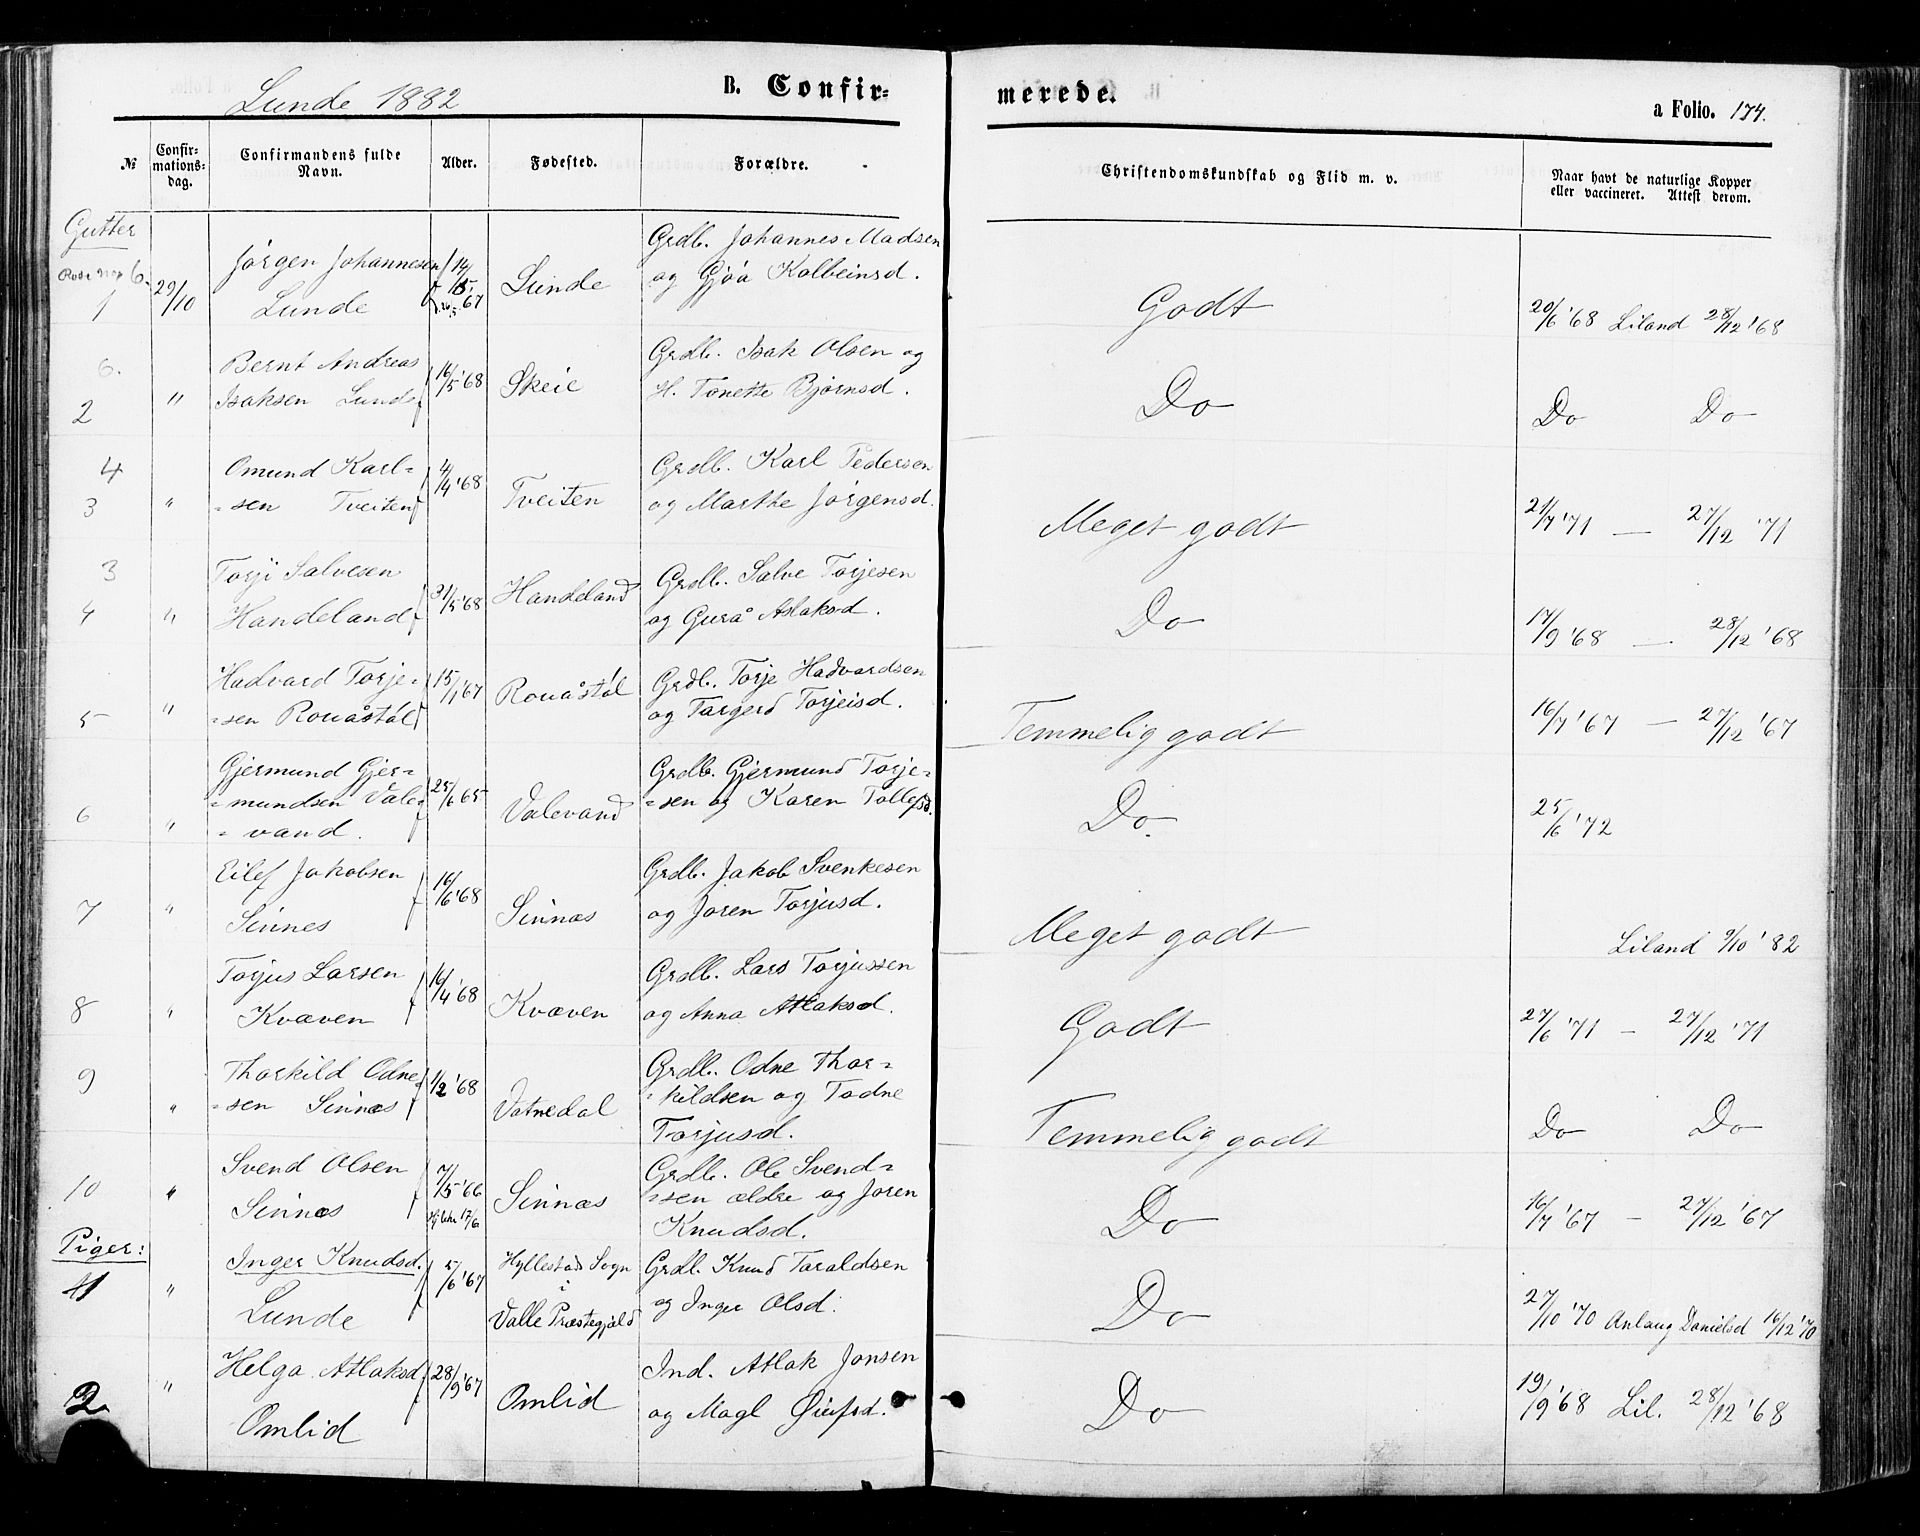 Lunde 1882
B. Confir=
merede.
a Folio. 174.
№
Confir-
mations-
dag.
Confirmandens fulde
Navn.
Alder.
Fødested.
Forældre.
Christendomskundskab og Flid m. v.
Naar havt de naturlige Kopper
eller vaccineret. Attest derom.
Gutter
6.
1
29/10
Jørgen Johannesen
Lunde
14/15. 67
Lunde
Grdb. Johannes Madsen
og Gjøa Kolbeinsd.
Godt
20/6 '68 Liland 28/12 '68
6.
2
"
Bernt Andreas
Isaksen Lunde
16/5 '68
Skeie
Grdb. Isak Olsen og
H. Tonette Bjørnsd.
Do
Do Do
4
3
"
Omund Karl=
=sen Tveiten
4/4 '68
Tveiten
Grdb. Karl Pedersen
og Marthe Jørgensd.
Meget godt
21/7 '71 — 27/12 '71
3
4
"
Torje Salvesen
Handeland
31/5 '68
Handeland
Grdb. Salve Torjesen
og Guraa Aslaksd.
Do
17/9 '68 — 28/12 '68
5
"
Hadvard Torje=
=sen Rouåstøl
15/1 '67
Rouåstøl
Grdb. Torje Hadvardsen
og Targerd Torjeisd.
Temmelig godt
16/7 '67 — 27/12 '67
6
"
Gjermund Gjer=
=mundsen Vale=
=vand.
25/6 65
Valevand
Grdb. Gjermund Torje=
=sen og Karen Tollefsd.
Do.
25/6 '72
7
"
Eilef Jakobsen
Sinnes
16/6 '68
Sinnæs
Grdb. Jakob Svenkesen
og Joren Torjusd.
Meget godt
Liland 9/10 '82
8
"
Torjus Larsen
Kvæven
16/4 '68
Kvæven
Grdb. Lars Torjussen
og Anna Atlaksd.
Godt
27/6 '71 — 27/12 '71
9
"
Thorkild Odne=
=sen Sinnæs
1/2 '68
Vatnedal
Grdb. Odne Thor=
=kildsen og Todne
Torjusd.
Temmelig godt
Do Do
10
"
Svend Olsen
Sinnæs
7/5 '66
17/6
Sinnæs
Grdb. Ole Svend=
=sen ældre og Joren
Knudsd.
Do
16/7 '67 — 27/12 '67
Piger:
1
"
Inger Knudsd.
Lunde
5/6 '67
Hyllestad Sogn
i
Valle Præstegjæld
Grdb. Knud Taraldsen
og Inger Olsd.
Do
27/10 '70 Anlaug Danielsd 16/12 '70
2
"
Helga Atlaksd
Omlid
28/9 '67
Omlid
Ind. Atlak Jonsen
og Magl Øiufsd.
Do
19/9 '68 Lil. 28/12 '68